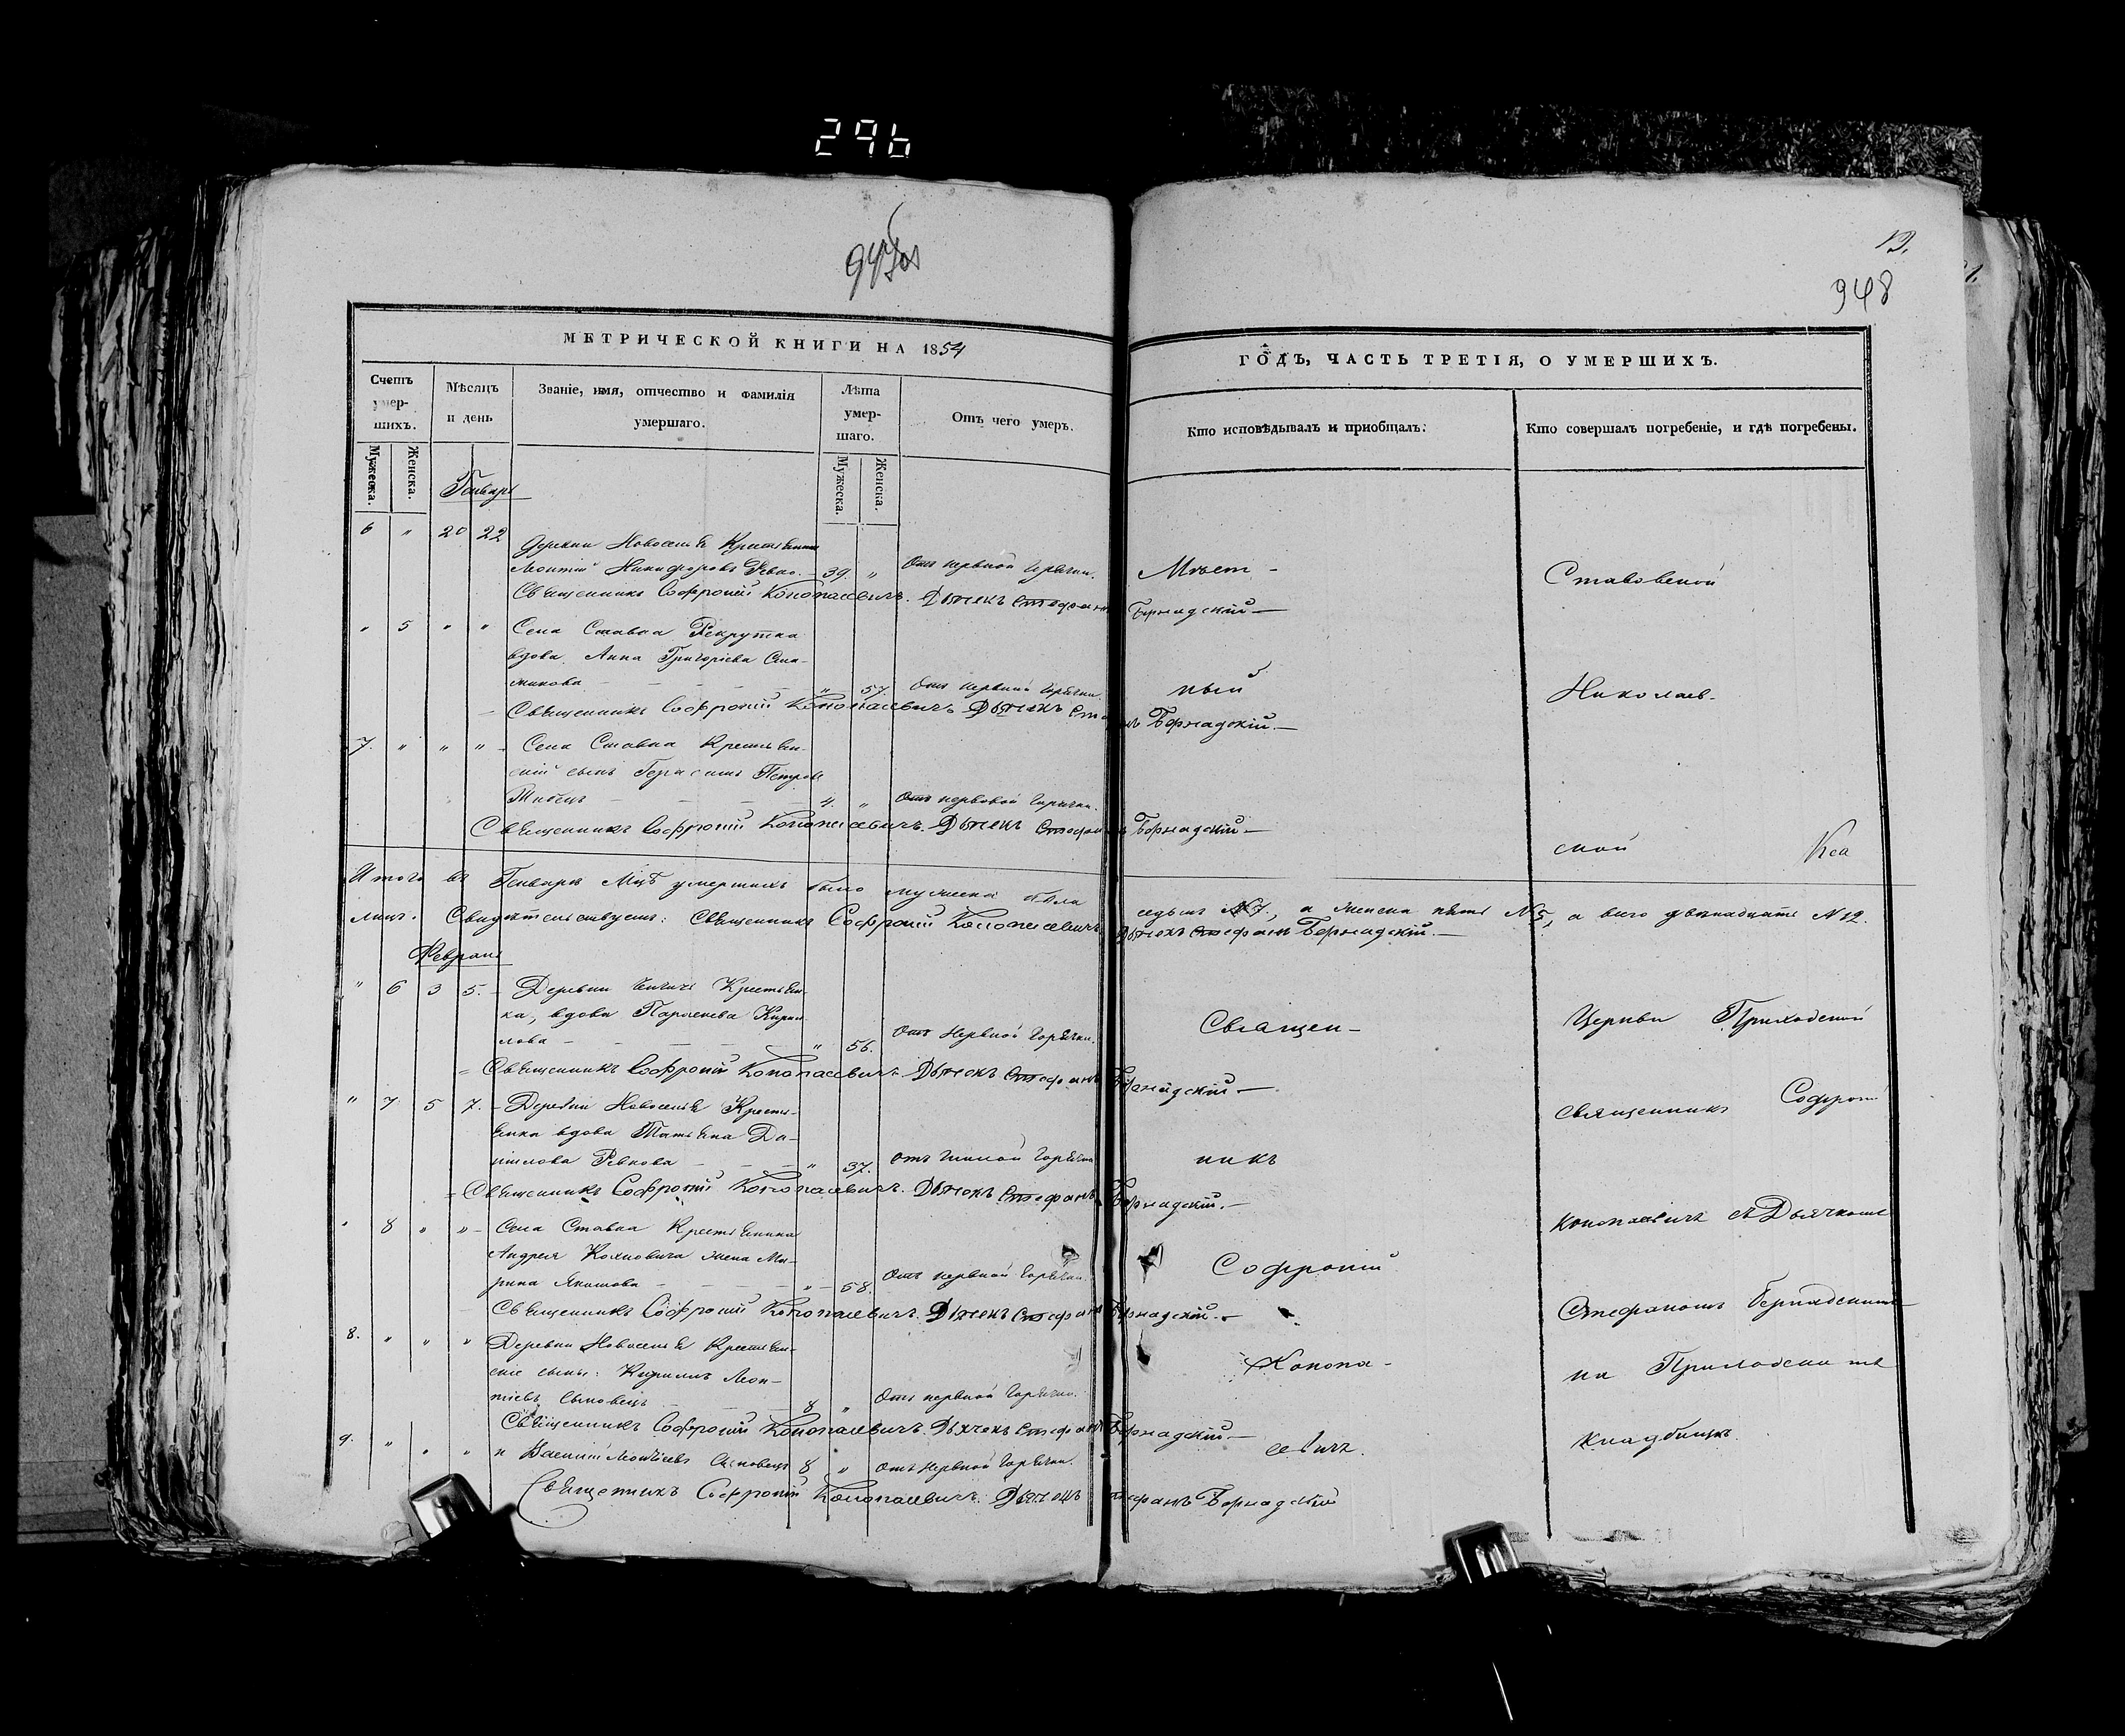 296
948
МЕТРИЧЕСКОЙ КНИГИ НА 1854
ГОДЪ, ЧАСТЬ ТРЕТІЯ, О УМЕРШИХЪ.
Счетъ умер-шихъ.
Мѣсяцъ и день
Званіе, имя, отчество и фамилія умершаго.
Лѣта умер-шаго.
Отъ чего умеръ.
Кто исповѣдывалъ и приобщалъ.
Кто совершалъ погребеніе, и гдѣ погребены.
Мужеска.
Женска.
Мужеска.
Женска.
Генваря
6 " 20 22
Деревни Новоселья Крестьянинъ
Леонтій Никифоровъ Ревко. 39. " Отъ нервной горячки.
Мѣст-
Ставовской
Священникъ Софроній Конопасевичъ. Дьячекъ Стефанъ Бернадскій—
" 5 " " Села Ставка Рекрутка
вдова Анна Григорієва
" 57. Отъ нервной горячки.
ный
Николаев-
Священникъ Софроній Конопасевичъ Дьячекъ Стефанъ Бернадскій.—
7. " " " Села Ставка Крестьян-
скій сынъ Герасимъ Петровъ
4. " Отъ нервовой горячки.
Священникъ Софроній Конопасевичъ. Дьячекъ Стефанъ Бернадскій—
ской
Итого въ Генварѣ Мцѣ умершихъ было мужеска пола
седьмъ №7., а женска пять №5, а всего двѣнадцать №12.
лицъ. Свидѣтельствуемъ: Священникъ Софроній Конопасевичъ Дьячекъ Стефанъ Бернадскій.—
Февраль
" 6 3 5. Деревни Крестьян-
ка, вдова Кирил-
лова " 56. Отъ Нервной Горячки.
Священ-
Церкви Приходской
Священникъ Софроній Конопасевичъ Дьячекъ Стефанъ Бернадскій—
" 7 5 7. Деревни Новоселья Кресть-
янка вдова Татьяна Да-
нилова Ревкова " 37. Отъ Горячки
никъ
священникъ Софроній
Священникъ Софроній Конопасевичъ. Дьячекъ Стефанъ Бернадскій.—
" 8 " " Села Ставка Крестьянина
Андрея жена Ма-
рина " 58. Отъ нервной Горячки.
Софроній
Конопасевичъ съ Дьячкомъ
Священникъ Софроній Конопасевичъ. Дьячекъ Стефанъ Бернадскій.—
Стефаномъ Бернадскимъ
8. " " " Деревни Новоселья Крестьян-
скіе сыны: Кириллъ Леон-
тіевъ 8 " Отъ нервной Горячки.
Конопа-
на Приходскомъ
Священникъ Софроній Конопасевичъ. Дьячекъ Стефанъ Бернадскій.—
9. " " " и Василій Леонтіевъ 8 " Отъ Нервной Горячки.
севичъ.
кладбищѣ.
Священникъ Софроній Конопасевичъ. Дьячекъ Стефанъ Бернадскій